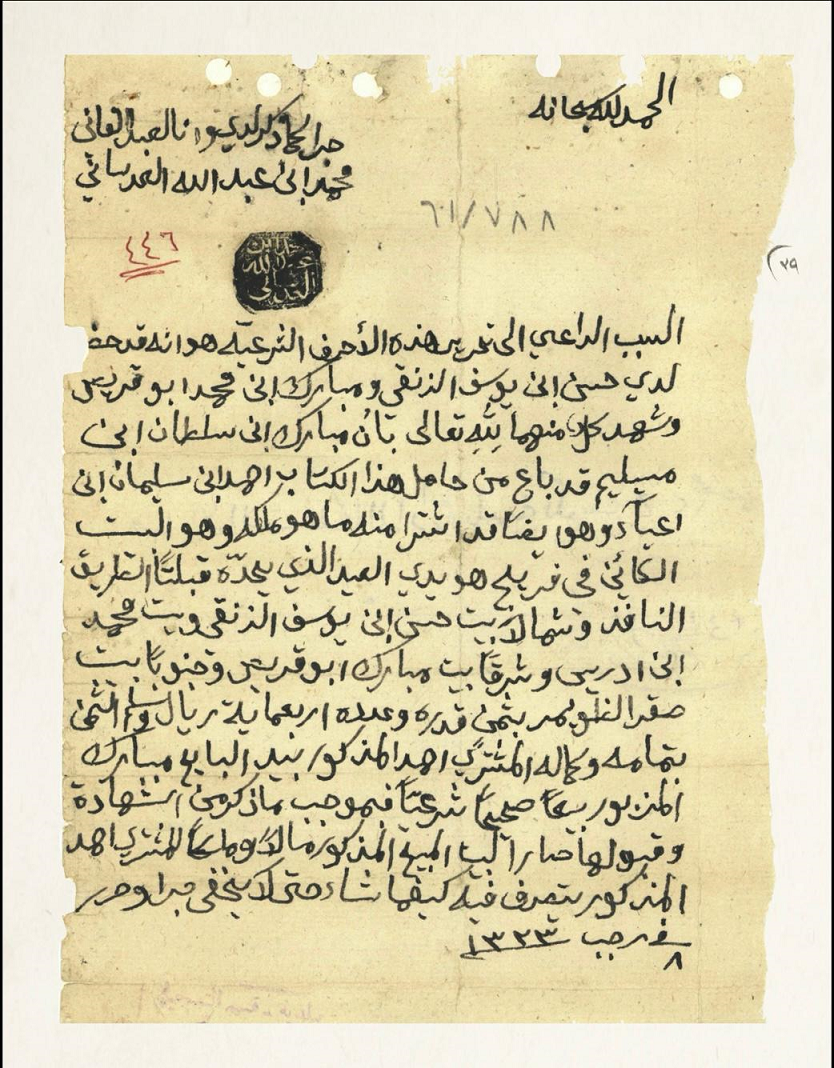 الحمد لله سبحانه
جرا كما ذكر لدي وانا العبد الفاني
محمد ابن عبد الله العدساني
٦١/٧٨٨
٤٤٦
٢٩
السبب الداعي الى تحرير هذه الأحرف الشرعيّه هو انه قد حضر
لدي حسن ابن يوسف الزنقي ومبارك ابن محمد ابو قريص
وشهد كلا منهما لله تعالى بأن مبارك ابن سلطان ابن
مسيليم قد باع من حامل هذا الكتاب احمد ابن سليمان ابن
اعيآد وهو ايضًا قد اشترا منه ما هو ملكه وهو البيت
الكائن في فريج هويدي العيد الذي يحدّه قبلتًا الطريق
النافذ وشمالاً بيت حسن ابن يوسف الزنقي وبيت محمد
ابن ادريس وشرقاً بيت مبارك ابو قريص وجنوباً بيت
صقر بثمن قدره وعدده اربعماية ريال وسلم الثمن
بتمامه وكماله المشتري احمد المذكور بيد البايع مبارك
المزبور بيعاً صحيحاً شرعيّاً فبموجب ما ذكر من الشهادة
وقبولها صار البيت المبيع المذكور مالاً وملكاً للمشتري احمد
المذكور يتصرف فيه كيفما شاء حتى لا يخفى جرا وحرر
في رجب ١٣٢٣
٨